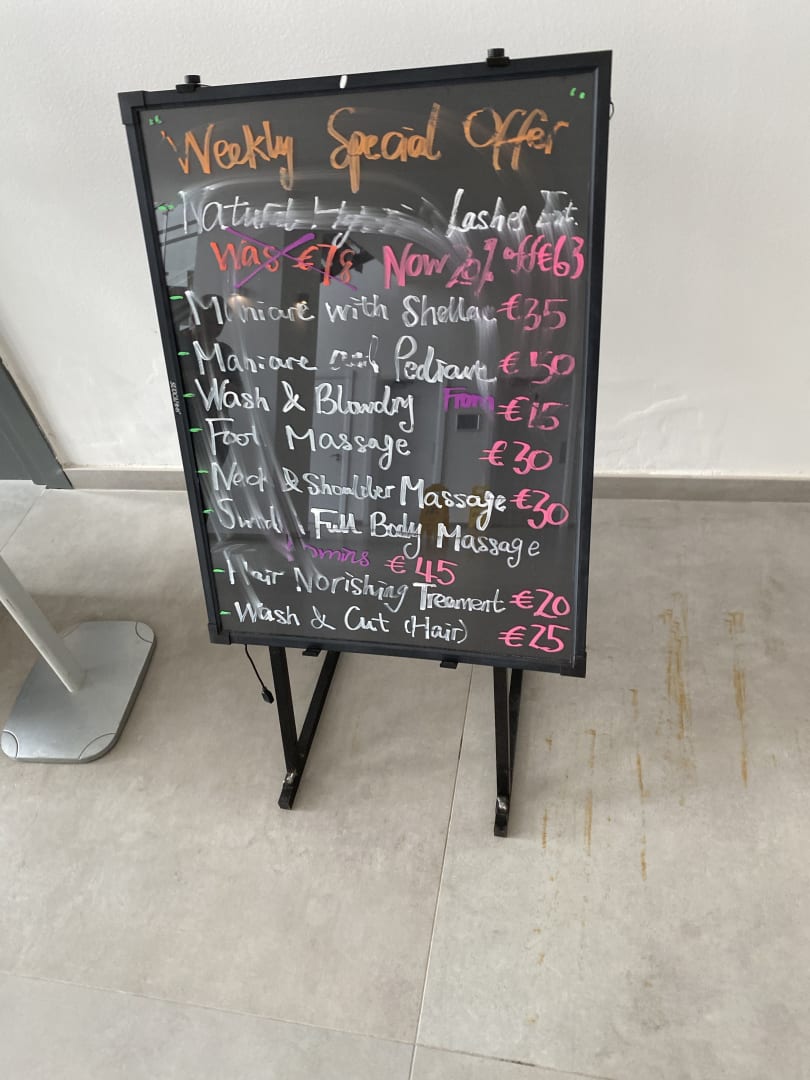 Weekly Special Offer
Natural Lashes Ext.
Was €78 Now 20% off €63
Maniare with Shellac €35
Maniare and Pediaure €50
Wash & Blowdry From €15
Foot Massage €30
Neck & Shoulder Massage €30
Full Body Massage
€45
Hair Norishing Treament €20
Wash & Cut (Hair) €25